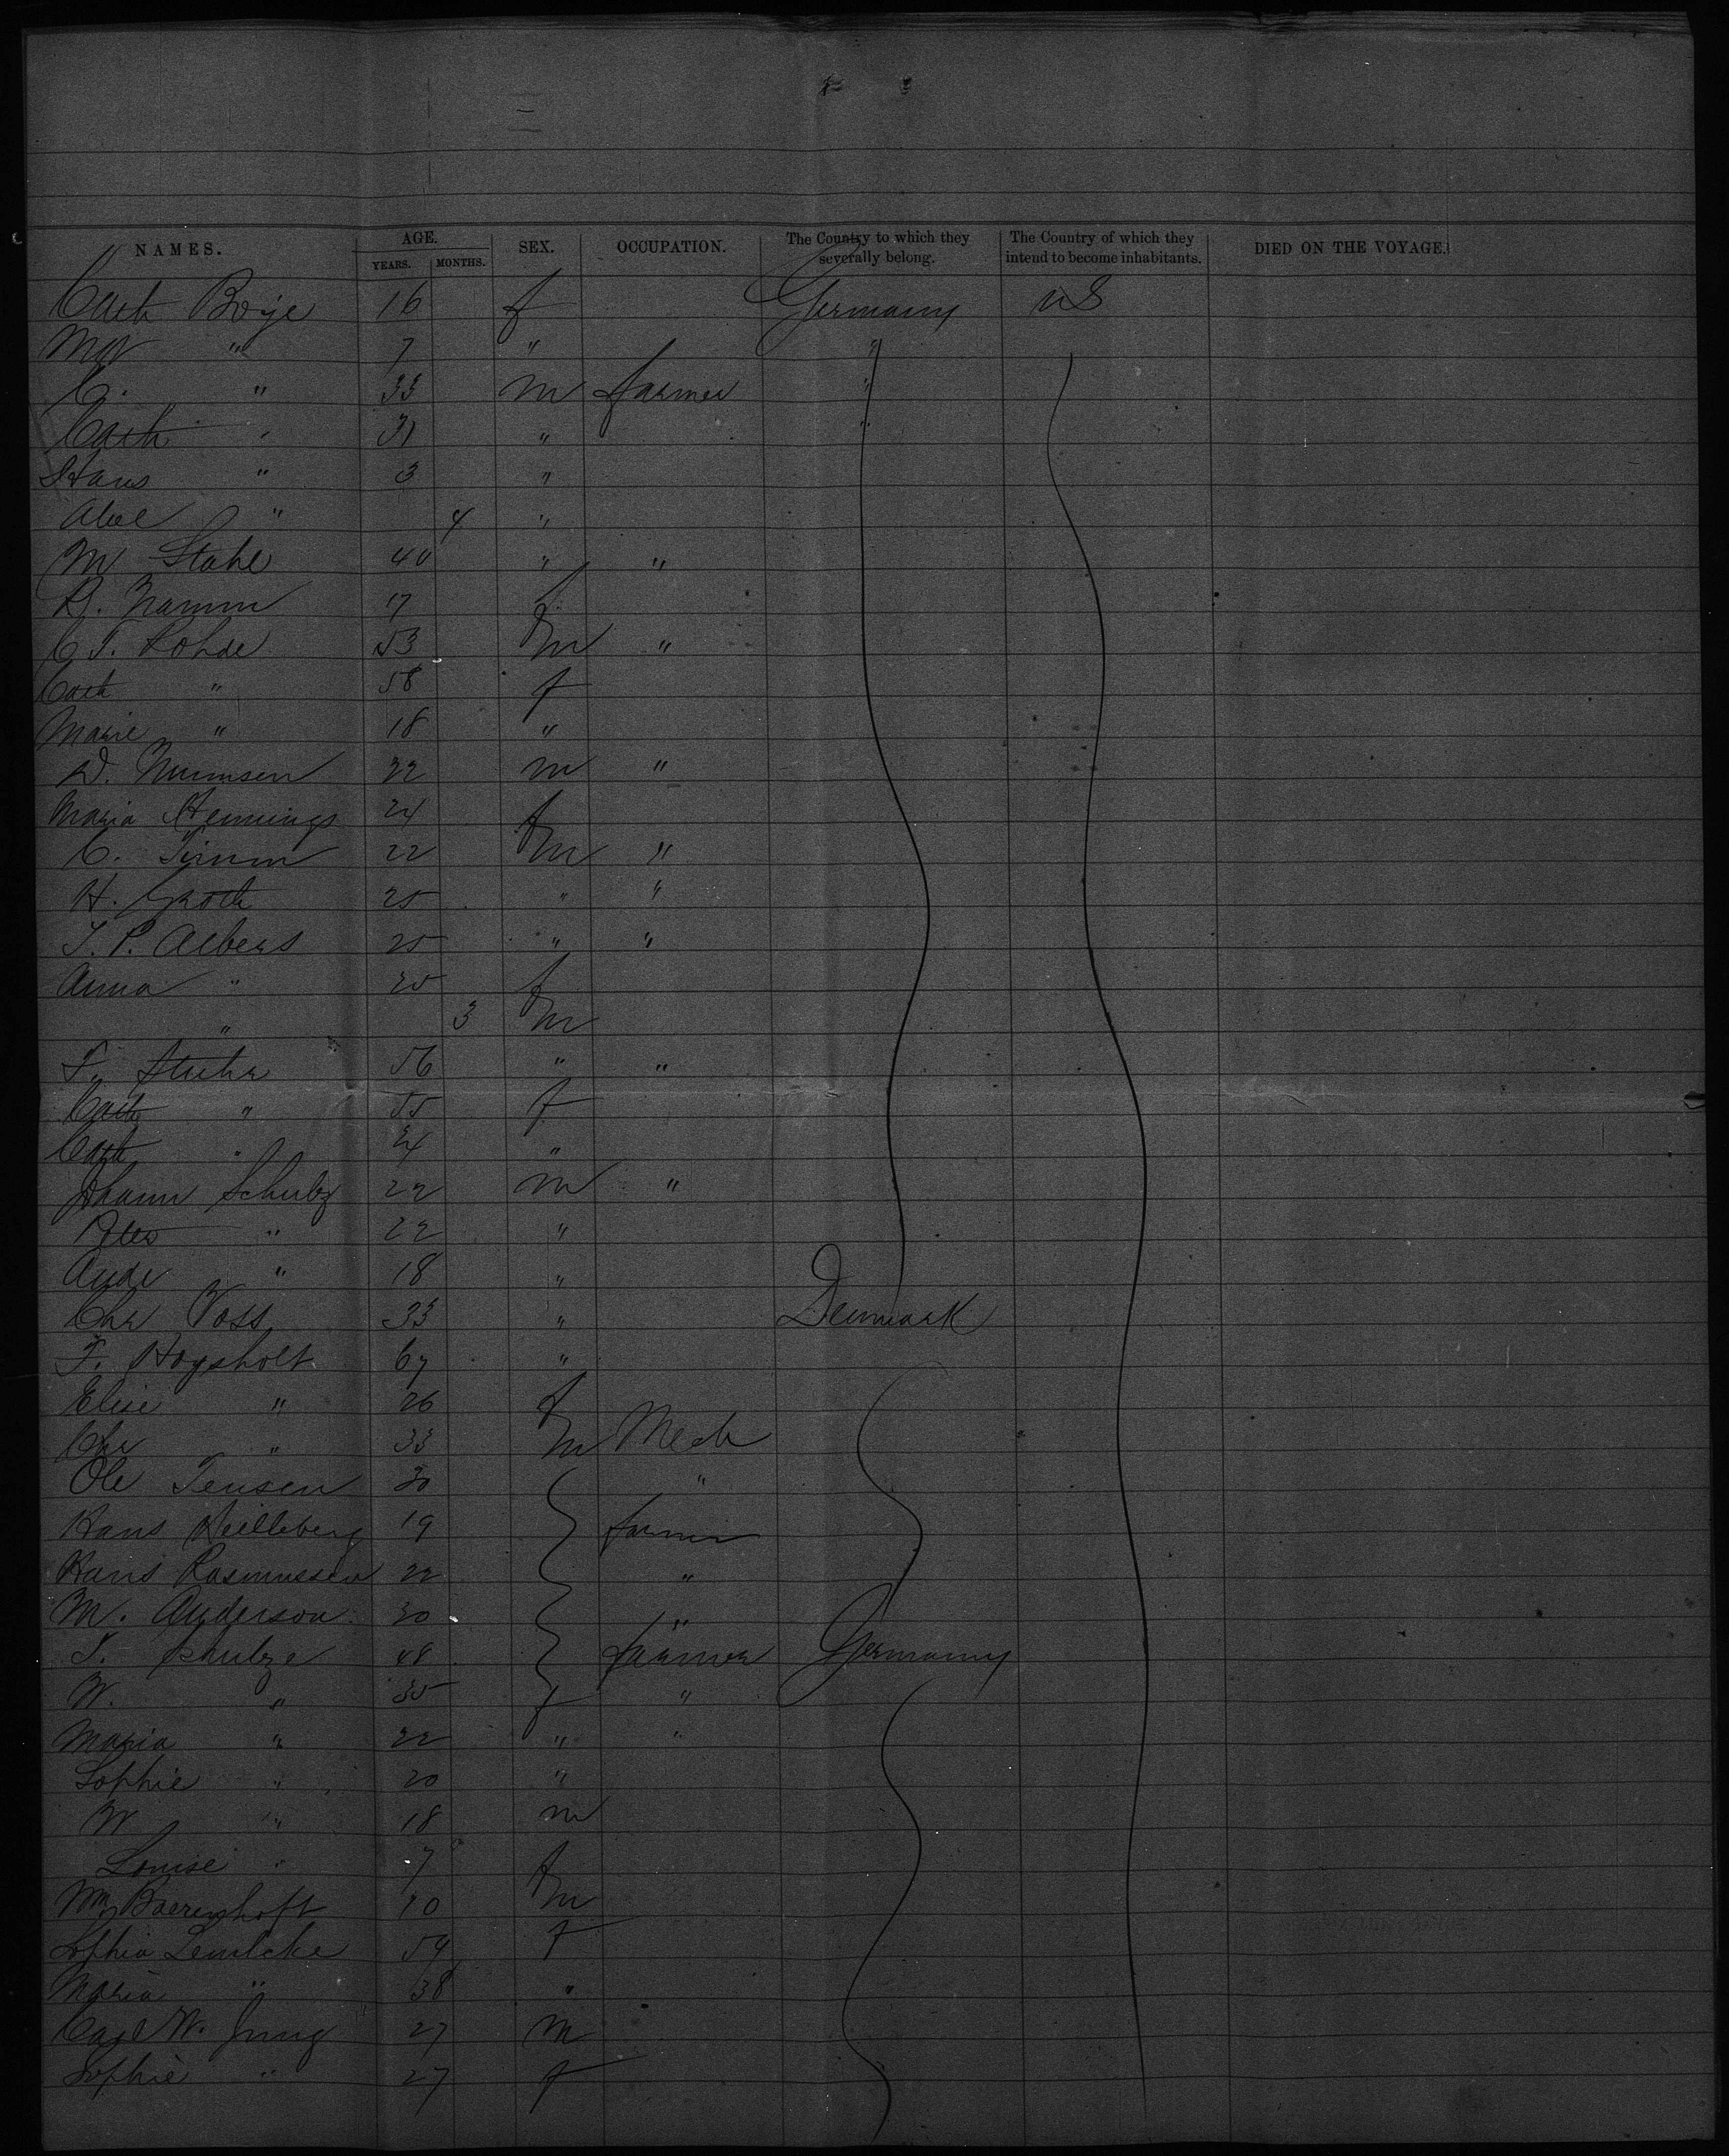 NAMES. AGE. SEX. OCCUPATION. The Country to which they severally belong. The Country of which they intend to become inhabitants. DIED ON THE VOYAGE.
YEARS. MONTHS.
Cath Boje 16 f Germany US
" 7 " "
C. " 33 m farmer "
Cath " 31 " "
Hans " 3 "
Abel " 4 "
M Stahl 40 " "
17 f
C. J. Rohde 53 m "
Cath " 58 f
Marie " 18 "
D. Numsen 22 m "
Maria Hennings 24 f
C. Timm 22 m "
H. Groth 25 " "
J. P. Albers 25 " "
Anna " 25 f
" 3 m
F. Stuhr 56 " "
Cath " 55 f
Cath " 24 "
Johann Schulz 22 m "
Peter " 22 "
" 18 "
Chr Voss 33 " Denmark
F. Hoysholt 67 "
Elise " 26 f
Chr " 33 m Mech
Ole Jensen 30 "
Hans 19 farmer
Hans Rasmussen 22 "
M. Anderson 30 "
J. Schulze 48 farmer Germany
W. " 35 f "
Maria " 22 " "
Sophie " 20 "
W " 18 m
Louise " 7 f
Wm 10 m
Sophia Lemlcke 59 f
Maria " 38 "
Carl W. Jung 27 m
Sophie " 27 f